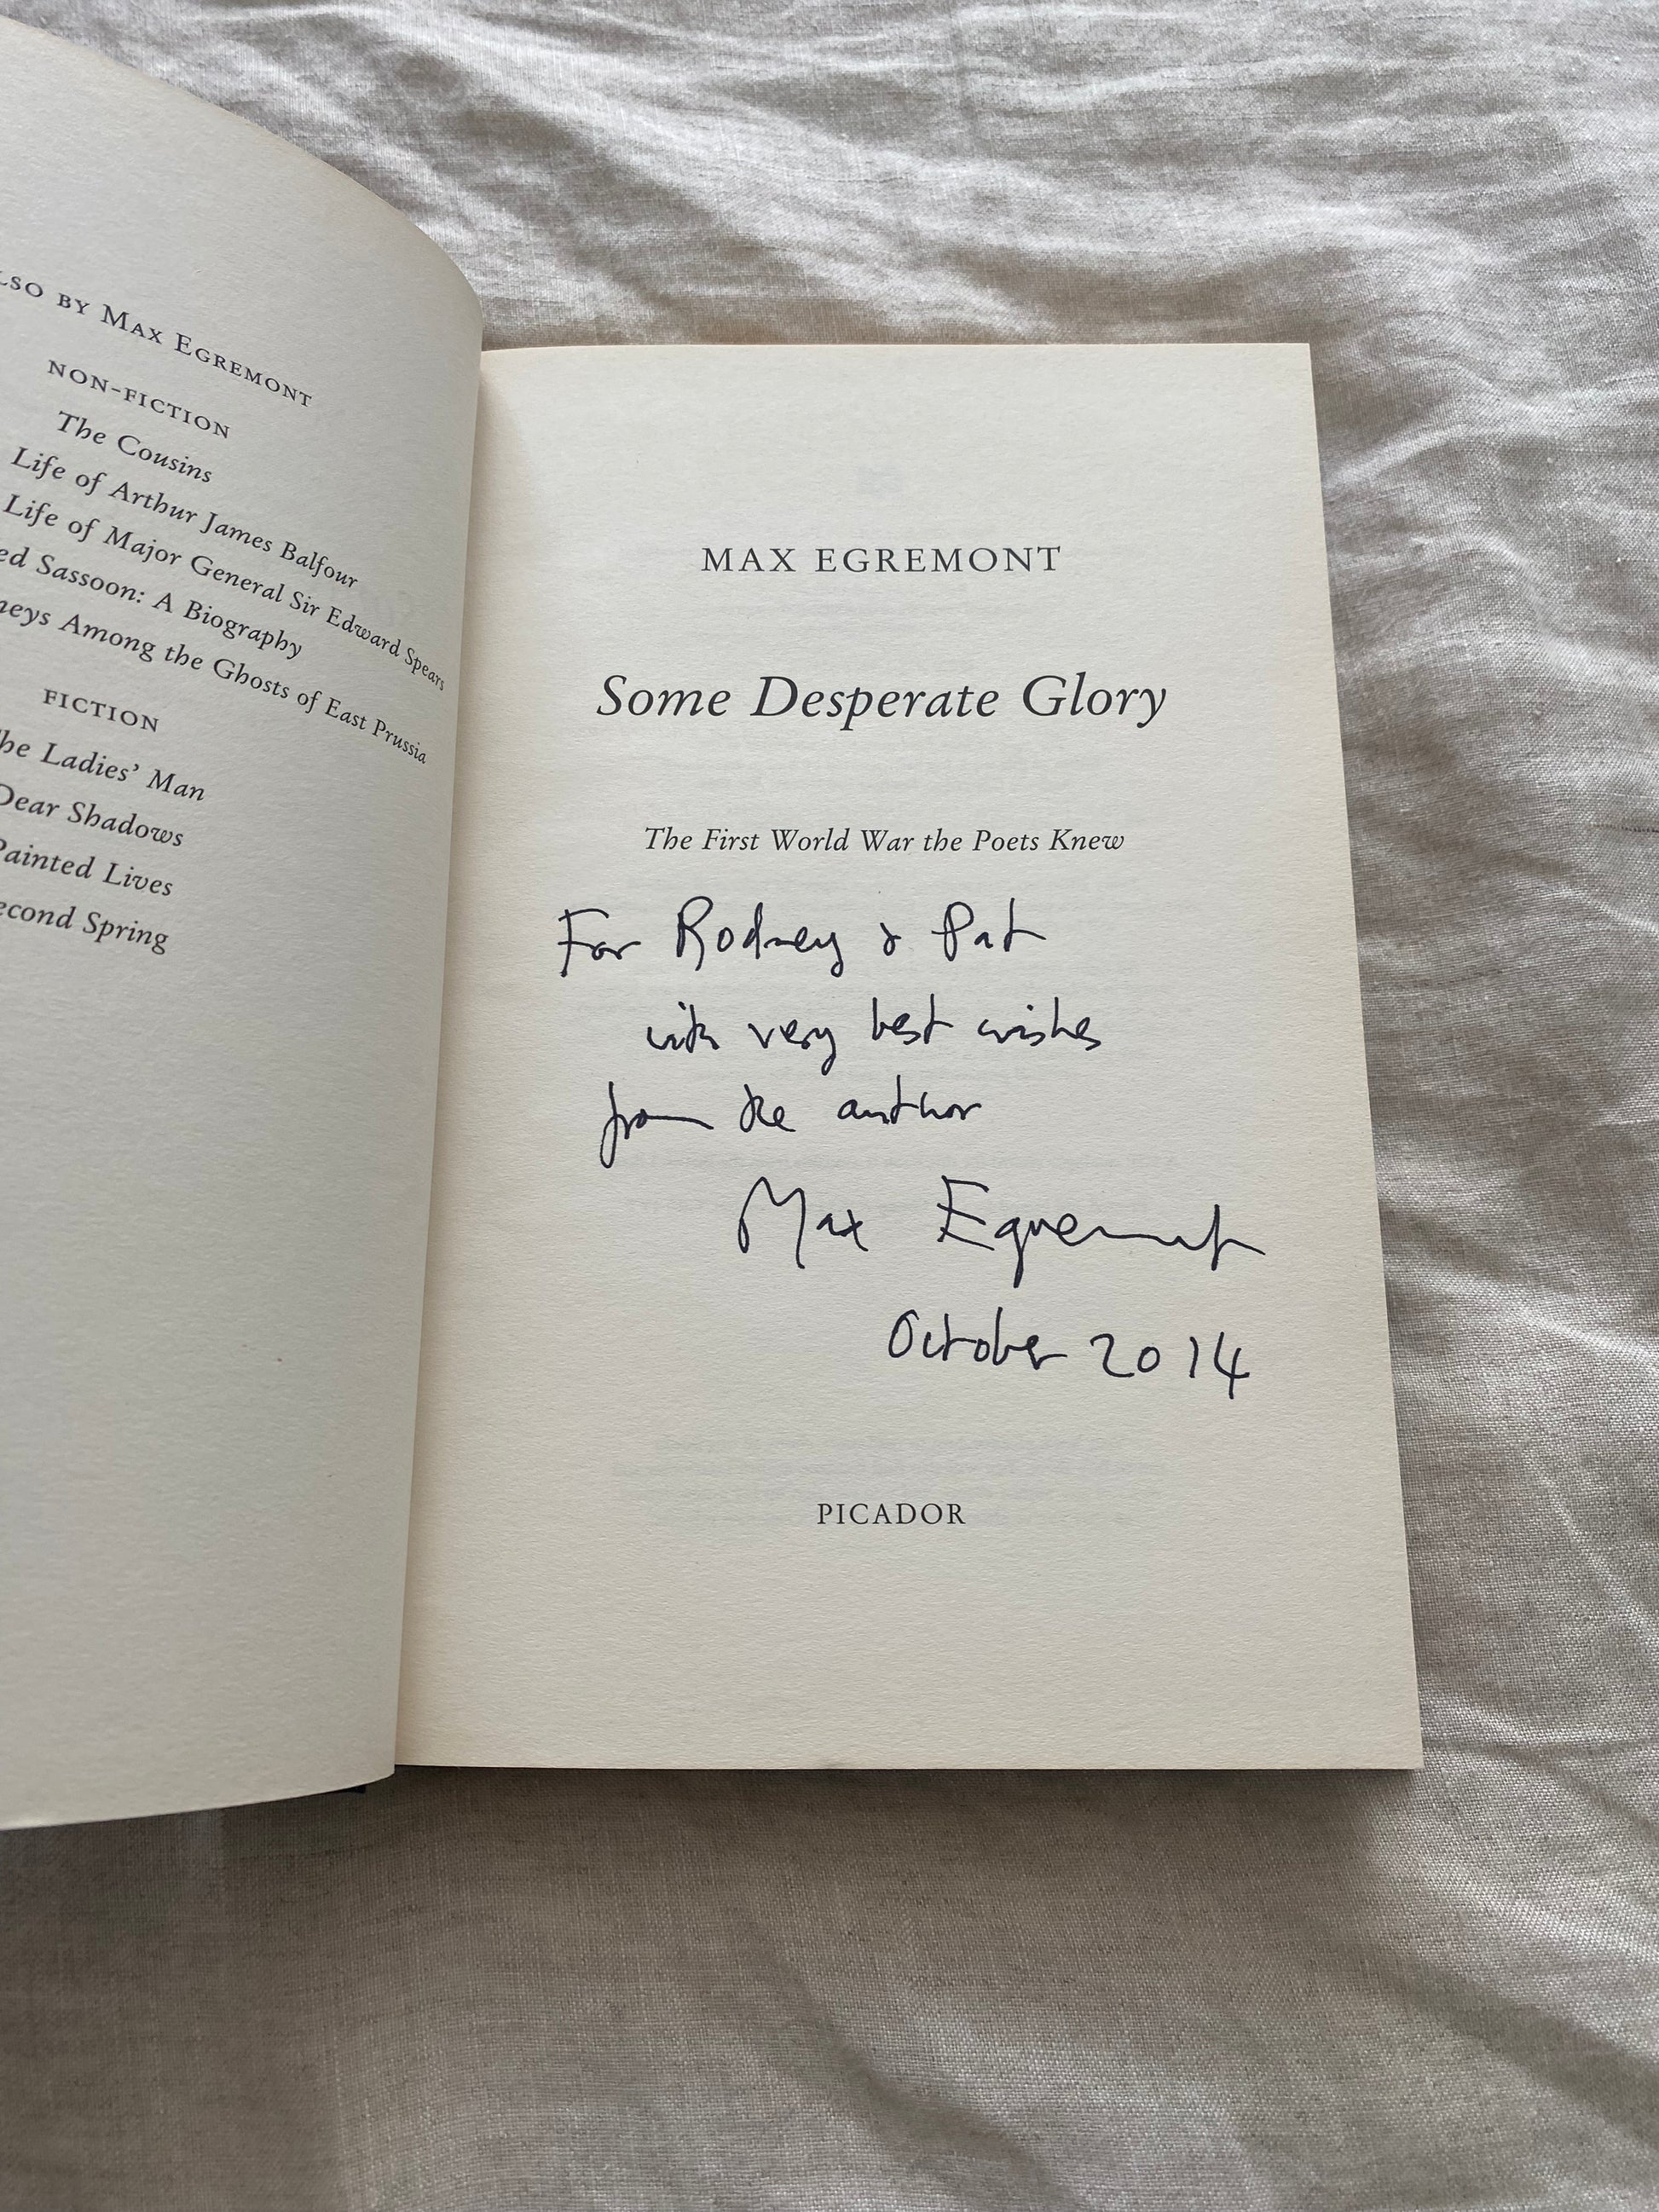 ALSO BY MAX EGREMONT
NON-FICTION
The Cousins
Life of Arthur James Balfour
Life of Major General Sir Edward Spears
Sassoon: A Biography
Among the Ghosts of East Prussia
FICTION
The Ladies' Man
Dear Shadows
Painted Lives
Second Spring
MAX EGREMONT
Some Desperate Glory
The First World War the Poets Knew
For Rodney & Pat
with very best wishes
from the author
Max Egremont
October 2014
PICADOR